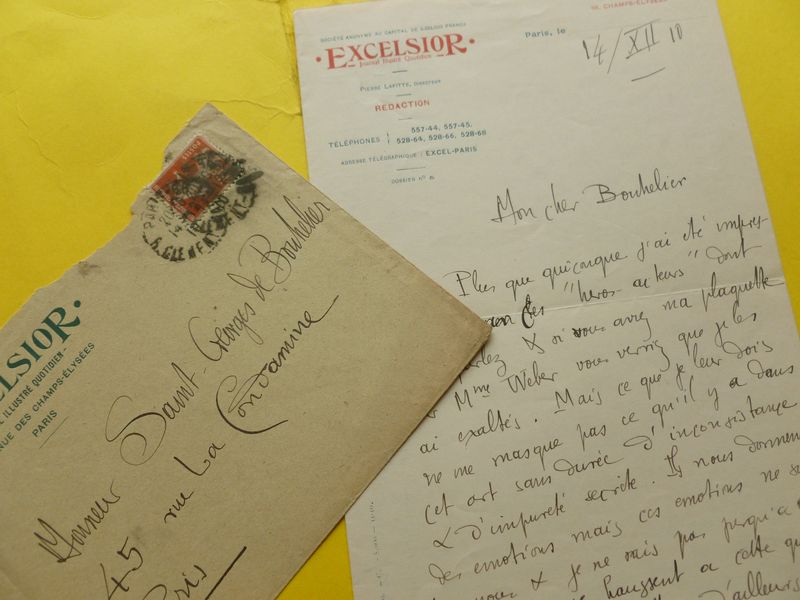 SOCIÉTÉ ANONYME AU CAPITAL DE FRANCS
EXCELSIOR
Journal Illustré Quotidien
PIERRE LAFITTE, DIRECTEUR
RÉDACTION
TÉLÉPHONES
557-44, 557-45,
528-64, 528-66, 528-68
ADRESSE TÉLÉGRAPHIQUE : EXCEL-PARIS
DOSSIER No
CHAMPS-ÉLYSÉES
Paris, le 14/XII 10
Mon cher Bouhelier
Plus que quiconque j'ai été impres-
les "héros acteurs" dont
parlez & si vous avez ma plaquette
Mme Weber vous verriez que je les
ai exaltés. Mais ce que je leur dois
ne me masque pas ce qu'il y a dans
cet art sans durée d'inconsistance
& d'impureté secrète. Ils nous donnent
des émotions mais ces émotions ne
& je ne sais pas
haussent a cette
d'ailleurs
CELSIOR
ILLUSTRÉ QUOTIDIEN
NUE DES CHAMPS-ÉLYSÉES
PARIS
Monsieur Saint-Georges de Bouhelier
45 rue La Condamine
Paris